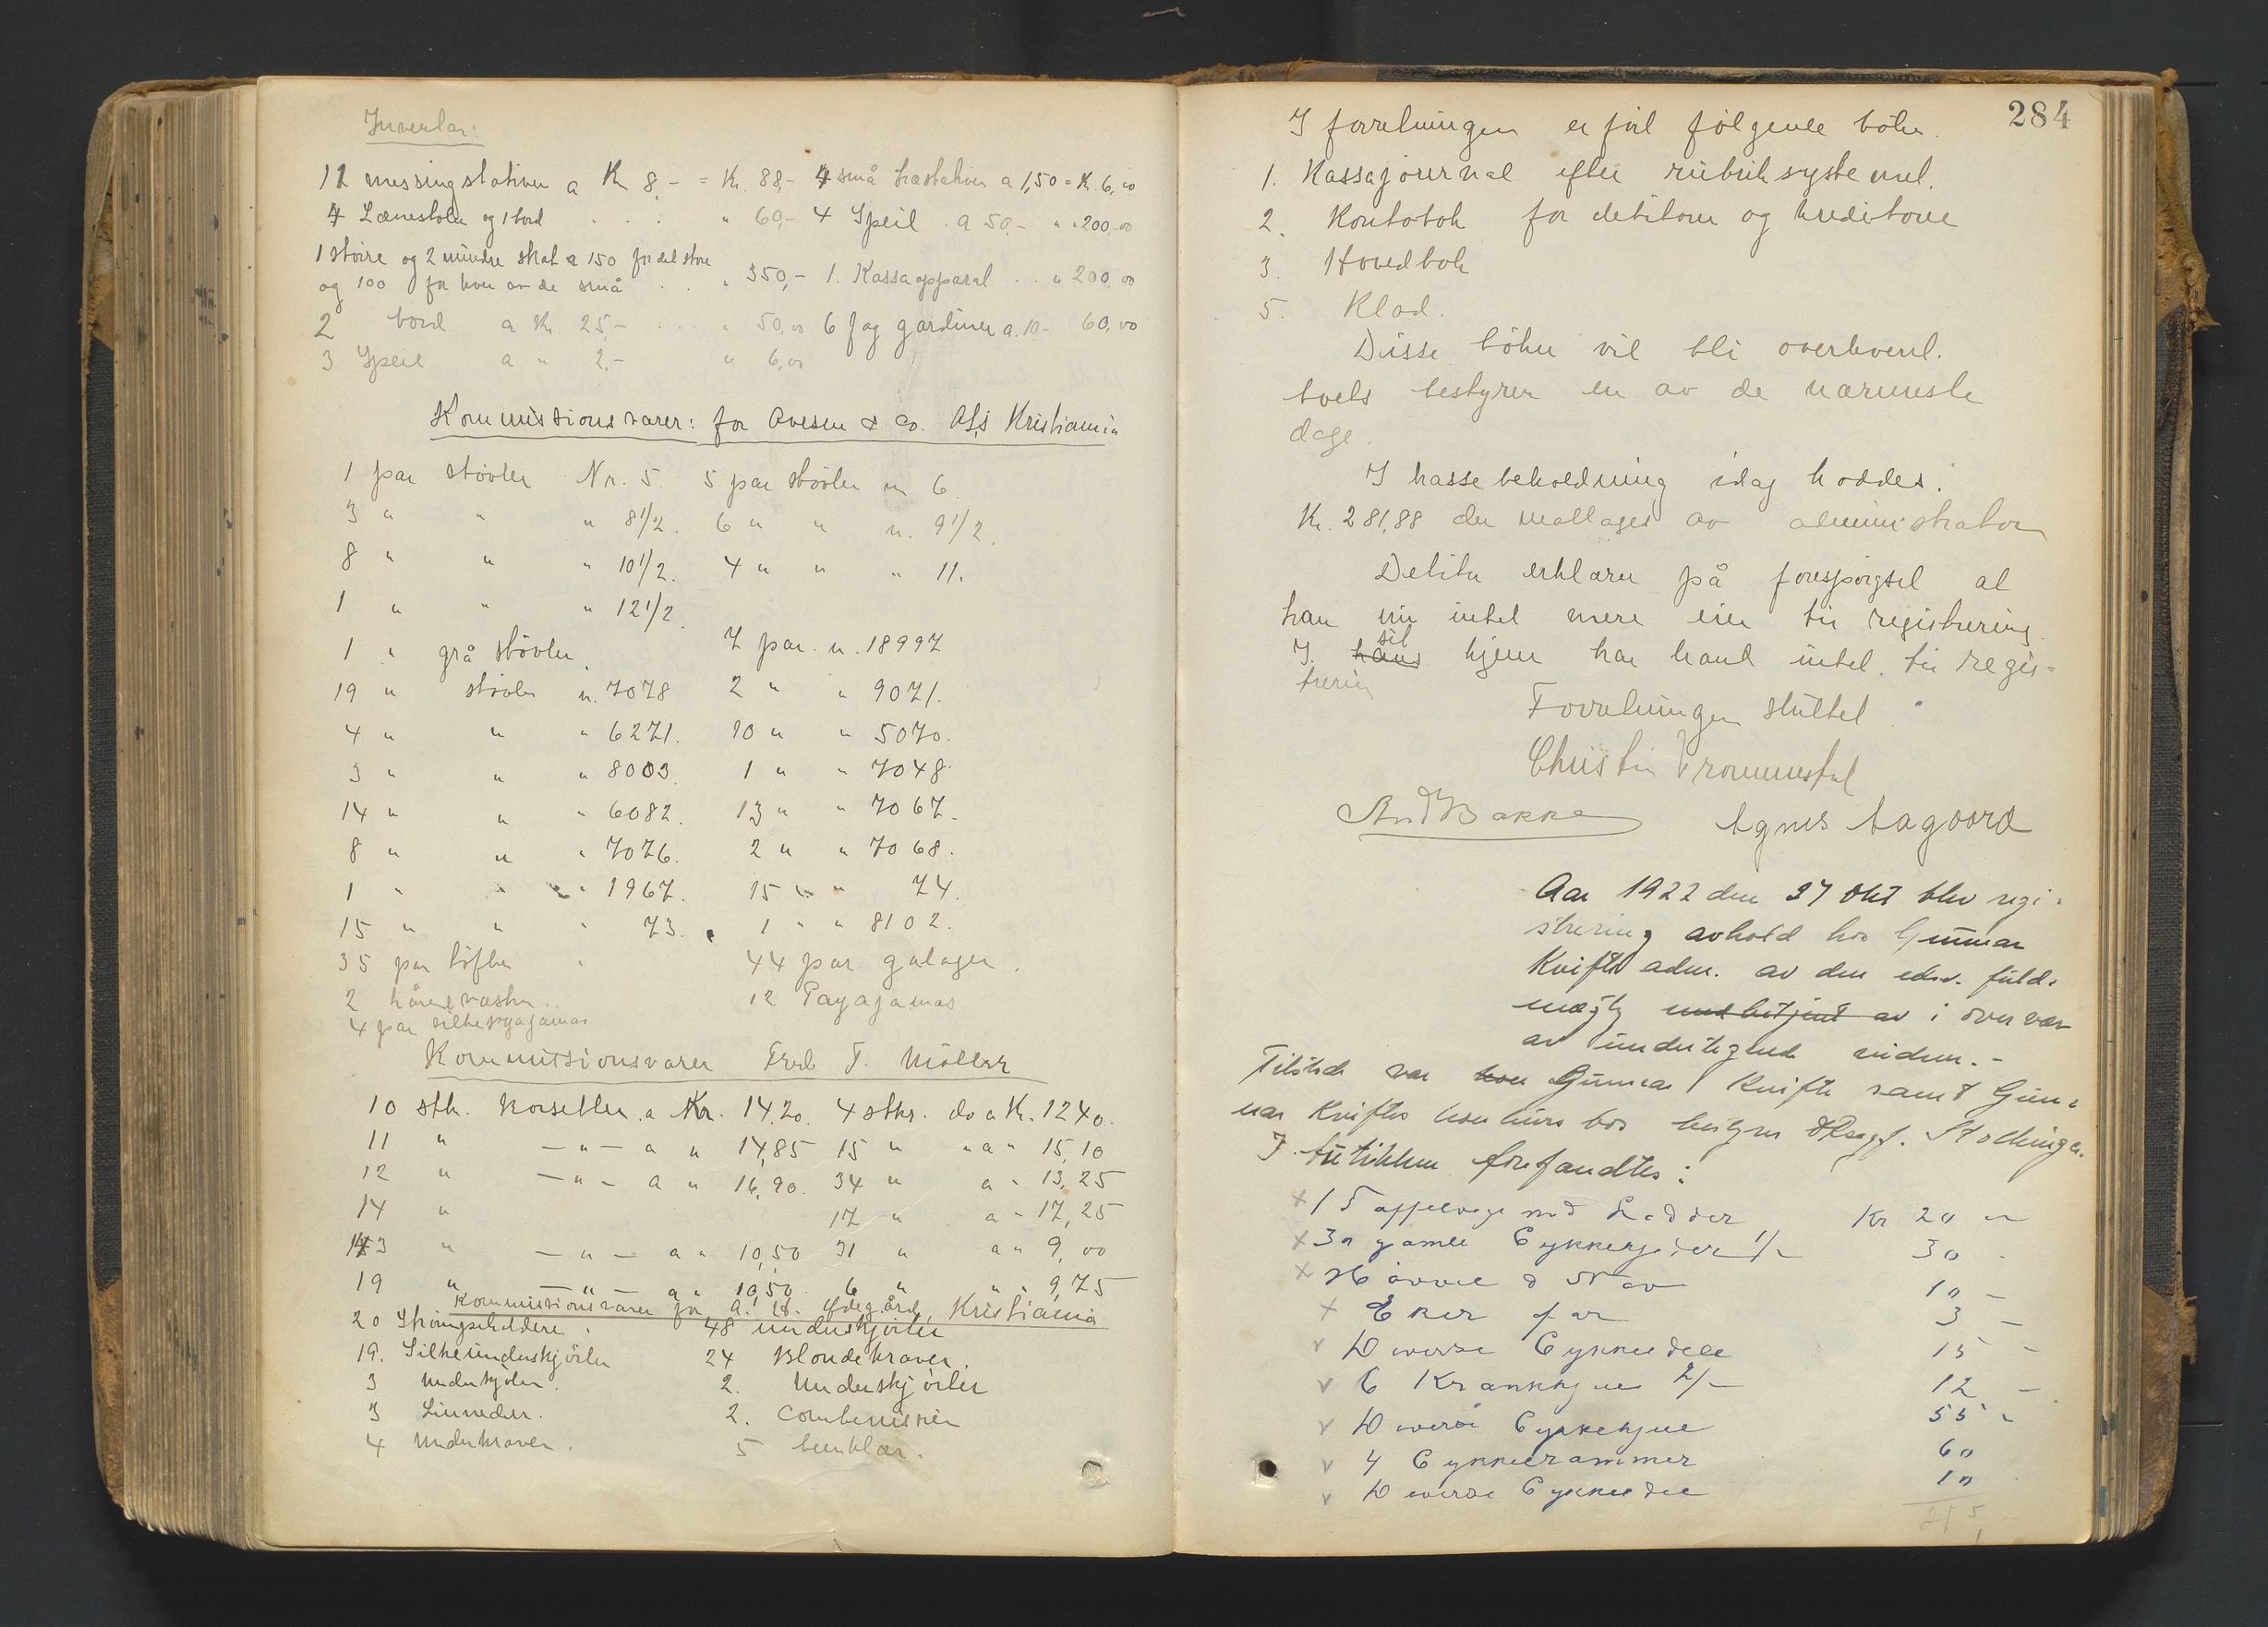 Inventar:
11 messingstativer a Kr 8,- = Kr. 88,- 4 små træstativer a 1,50 = Kr. 6,00
4 Lænestoler og 1 bord . . . " 60,- 4 Speil . a 50,- " " 200,00
1 större og 2 mindre skab a 150 for det store
og 100 for hver av de små . . " 350,- 1 Kassaapparat . . " 200,00
2 bord a Kr. 25,- . . . " 50,00 6 fag gardiner a 10- 60,00
3 Speil a " 2,- " 6,00
Kommissionsvarer: for Ovesen & Co. A/S Kristiania
1 par stövler Nr. 5 5 par stövler nr 6.
3 " " " 8 1/2. 6 " " n. 9 1/2.
8 " " " 10 1/2. 4 " " " 11.
1 " " " 12 1/2.
1 " grå stövler. 7 par. n. 18997
19 " stövler n. 7078 2 " " 9071.
4 " " " 6271. 10 " " 5070.
3 " " " 8003. 1 " " 7048.
14 " " " 6082. 13 " " 7067.
8 " " " 7076. 2 " " 7068.
1 " " " 1967. 15 " " 74.
15 " " " 73. 1 " " 8102.
35 par töfler . 44 par galager.
2 håndvæsker .. 12 Payajamas
4 par silkepyajamas
Kommissionsvarer Fred F. Möller
10 stk. korsetter a Kr. 14.20. 4 stkr. do a Kr. 12.40.
11 " -"- a " 14,85 15 " " a " 15,10
12 " -"- a " 16,90. 34 " a " 13,25
14 " 17 " a " 17,25
13 " -"- a " 10,50 31 " a " 9,00
19 " -"- a " 10,50 6 " " " 9,75
Kommissionsvarer for A. H. Ødegård, Kristiania
20 Strömpeholdere . 48 underskjörter
19. Silkeunderskjörter 24 Blondekraver.
3 Underkjoler. 2. Underskjörter
3 Linneder. 2. Combenisker
4 Underkraver. 5 benklær.
284
I forretningen er fört fölgende böker.
1. Kassajournal efter rubriksystemet.
2. Kontobok for debitorer og kreditorer
3. Hovedbok
5. Klad.
Disse böker vil bli overlevert.
boets bestyrer en av de nærmeste
dage.
I kassebeholdning idag haddes.
Kr. 281,88 der mottages av administrator
Debitor erklærer på forespörgsel at
han nu intet mere eier til registrering.
I hans sit hjem har hand intet til regis=
trering
Forretningen sluttet.
Christian Trommestad
And Bakke Agnes Aagaard
Aar 1922 den 27 Okt blev regi-
strering avhold hos Gunnar
Kvifte adm. av den edsv. fuld-
mægtig med betjent av i overvær
av undertegnede vidner.-
Tilstede var hos Gunnar Kvifte samt Gun-
nar Kviftes konkurs bos bestyrer
I butikken forefandtes:
x 1 Tappelvæg med Kr 20 -
x 30 gamle Cykkel 1/- 30 -
x 10 -
x Eker for 3 -
v Diverse Cykkeldele 15 -
v 6 Krankhjul 2/- 12 -
v Diverse Cykkelhjul 55 -
v 4 Cykkelrammer 60
v Diverse Cykkeldele 10
215,